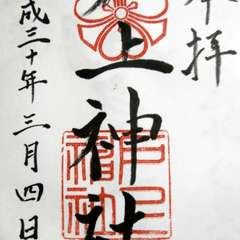 拝
上神社
成三十年三月四日